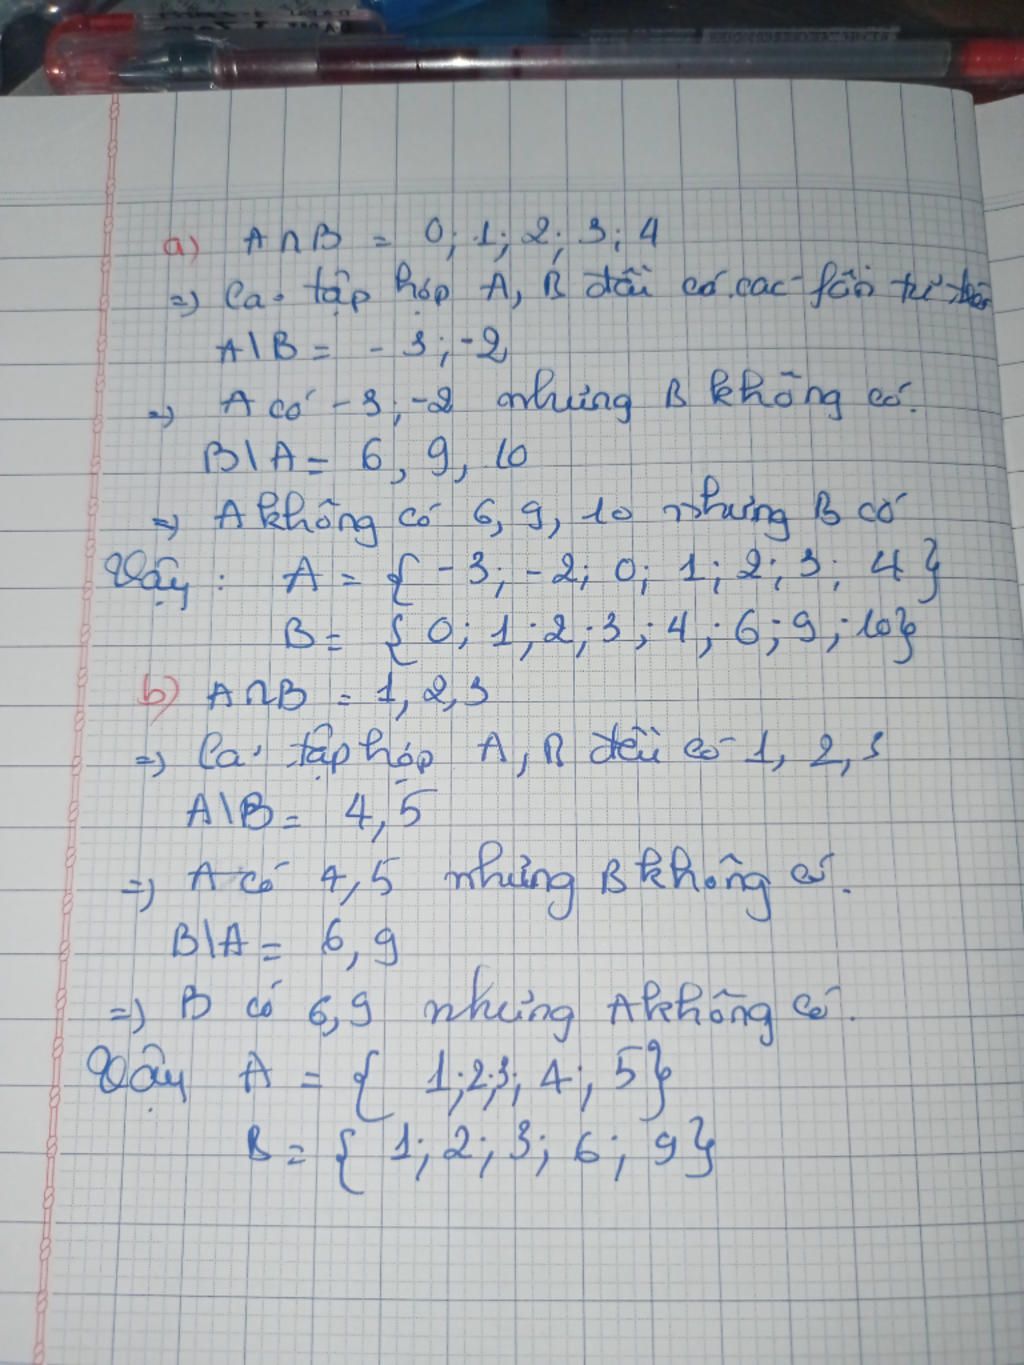 a) A∩B = 0; 1; 2; 3; 4
=> Cả tập hợp A, B đều có các phần tử trên
A\B = -3; -2
=> A có -3; -2 nhưng B không có.
B\A = 6, 9, 10
=> A không có 6, 9, 10 nhưng B có
Vậy: A = {-3; -2; 0; 1; 2; 3; 4}
B = {0; 1; 2; 3; 4; 6; 9; 10}
b) A∩B = 1, 2, 3
=> Cả tập hợp A, B đều có 1, 2, 3
A\B = 4, 5
=> A có 4, 5 nhưng B không có.
B\A = 6, 9
=> B có 6, 9 nhưng A không có.
Vậy A = { 1; 2; 3; 4; 5}
B = { 1; 2; 3; 6; 9}